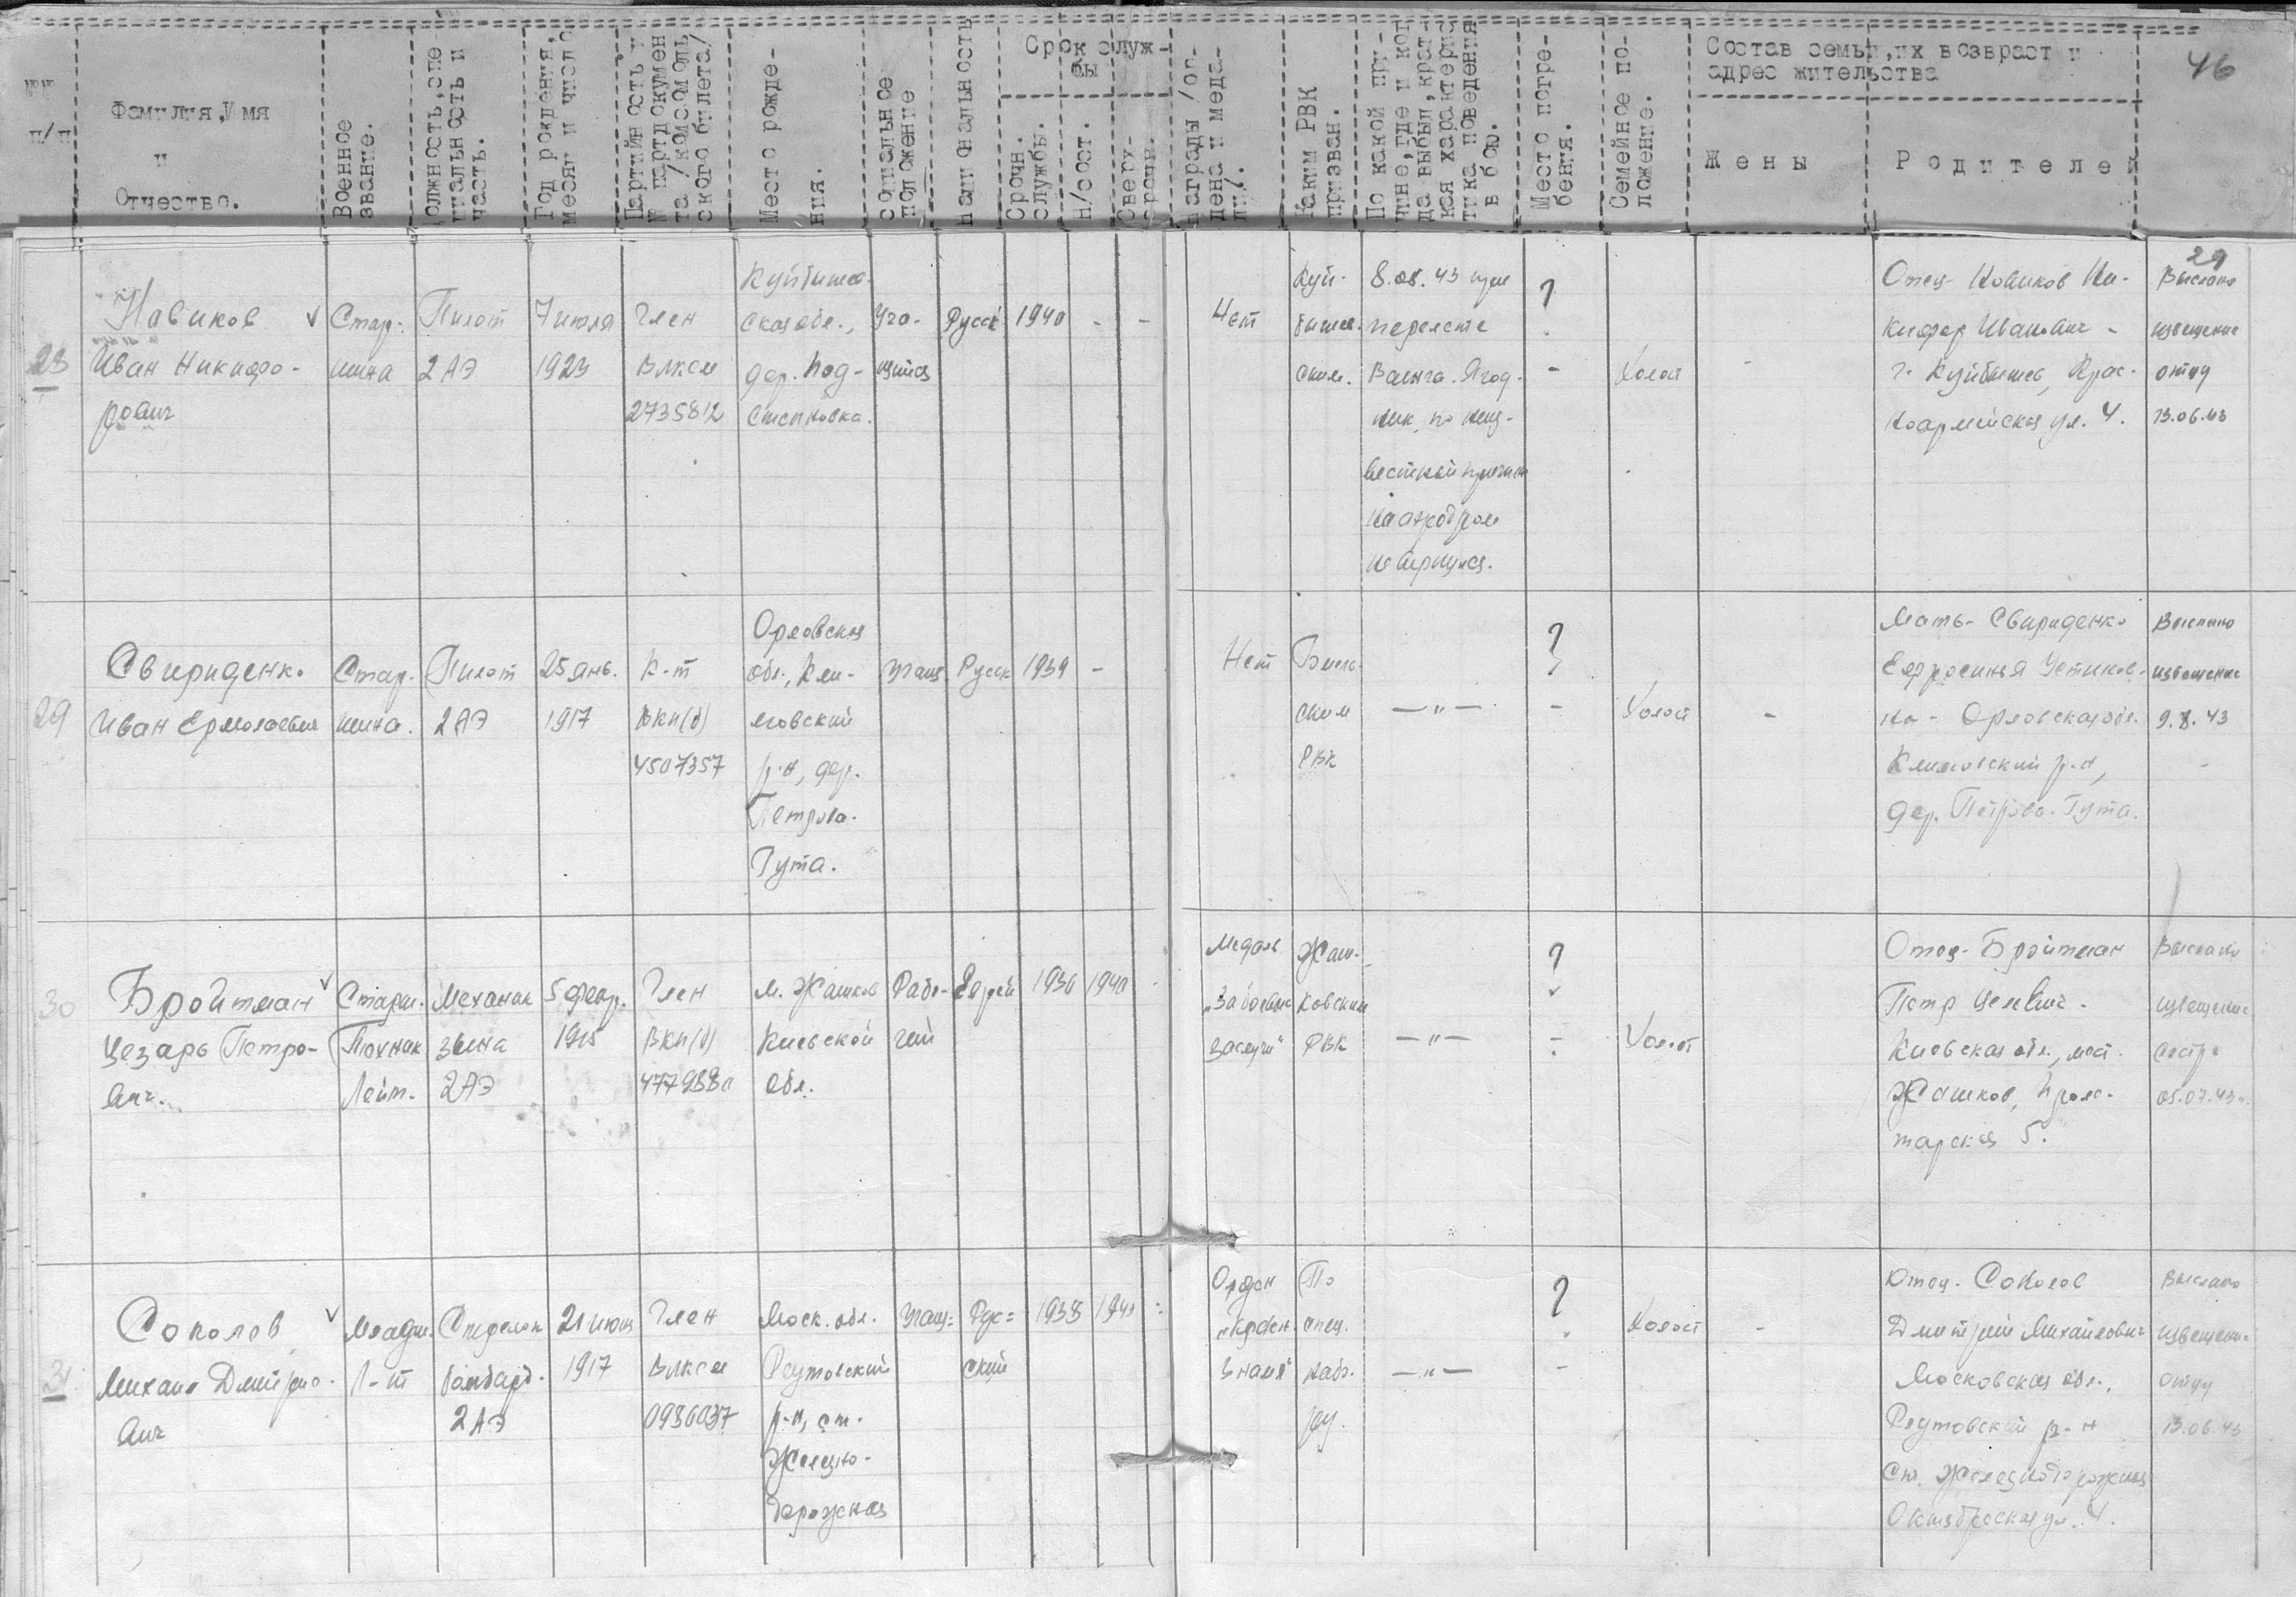 46
№№ п/п
Фамилия, Имя
и
Отчество.
Военное
звание.
Должность, спе
циальность и
часть.
Год рождения,
месяц и число
Партийность и
№ партдокумен
та /комсомоль
ского билета/
Место рожде-
ния.
социальное
положение
национальность
Срок служ-
бы
Срочн.
службы.
н/сост.
Сверх-
срочн.
награды /ор-
дена и меда-
ли/.
Каким РВК
призван.
По какой при-
чине, где и ког
да выбыл, крат-
кая характерис
тика поведения
в бою.
Место погре-
бения.
Семейное по-
ложение.
Состав семьи, их возраст и
адрес жительства
Жены
Родителей
29
28
Новиков
Иван Никифо-
рович
Стар-
шина
Пилот
2 АЭ
7 июля
1923
Член
ВЛКСМ
2735812
Куйбышев-
ская обл.,
дер. Под-
степновка.
Уча-
щийся
Русск
1940
-
-
Нет
Куй-
бышев-
ским.
8.06.43 при
перелете
Ваенга-Ягод-
ник, по неиз-
вестной причине
на аэродром
не вернулся.
?
-
Холост
-
Отец- Новиков Ни-
кифор Иванович -
г. Куйбышев, Крас-
ноармейская ул. 4.
Выслано
извещение
отцу
13.06.43
29
Свириденко
Иван Ермолаевич
Стар-
шина.
Пилот
2 АЭ
25 янв.
1917
К-т
ВКП(б)
4507357
Орловская
обл., Кли-
мовский
р-н, дер.
Петрова-
Гута.
Учащ
Русск
1939
-
Нет
РВК
—"—
?
-
Холост
-
Мать- Свириденко
Ефросинья Устинов-
на - Орловская обл.
Климовский р-н,
дер. Петрова-Гута.
Выслано
извещение
9.8.43
30
Бройтман
Цезарь Петро-
вич.
Старш.
Техник
Лейт.
Механик
звена
2 АЭ
5 февр.
1915
Член
ВКП(б)
4779880
м. Жашков
Киевской
обл.
Рабо-
чий
Еврей
1936
1940
Медаль
„За боевые
заслуги"
Жаш-
ковским
РВК
—"—
?
-
Холост
Отец- Бройтман
Петр
Киевская обл., мест.
Жашков, Проле-
тарская 5.
Выслано
извещение
сестре
05.07.43г.
31
Соколов
Михаил Дмитрие-
вич
Младш.
Л-т
Стрелок
бомбард.
2 АЭ
21 июня
1917
Член
ВЛКСМ
0936037
Моск. обл.
Реутовский
р-н, ст.
Железно-
дорожная
Учащ=
Рус=
ский
1938
1941
Орден
„Красн.
Знамя"
По
спец.
набо-
ру.
—"—
?
-
Холост
-
Отец- Соколов
Дмитрий Михайлович
Московская обл.,
Реутовский р-н
Ст. Железнодорожная
Октябрьская ул. 4.
Выслано
извещение
отцу
13.06.43